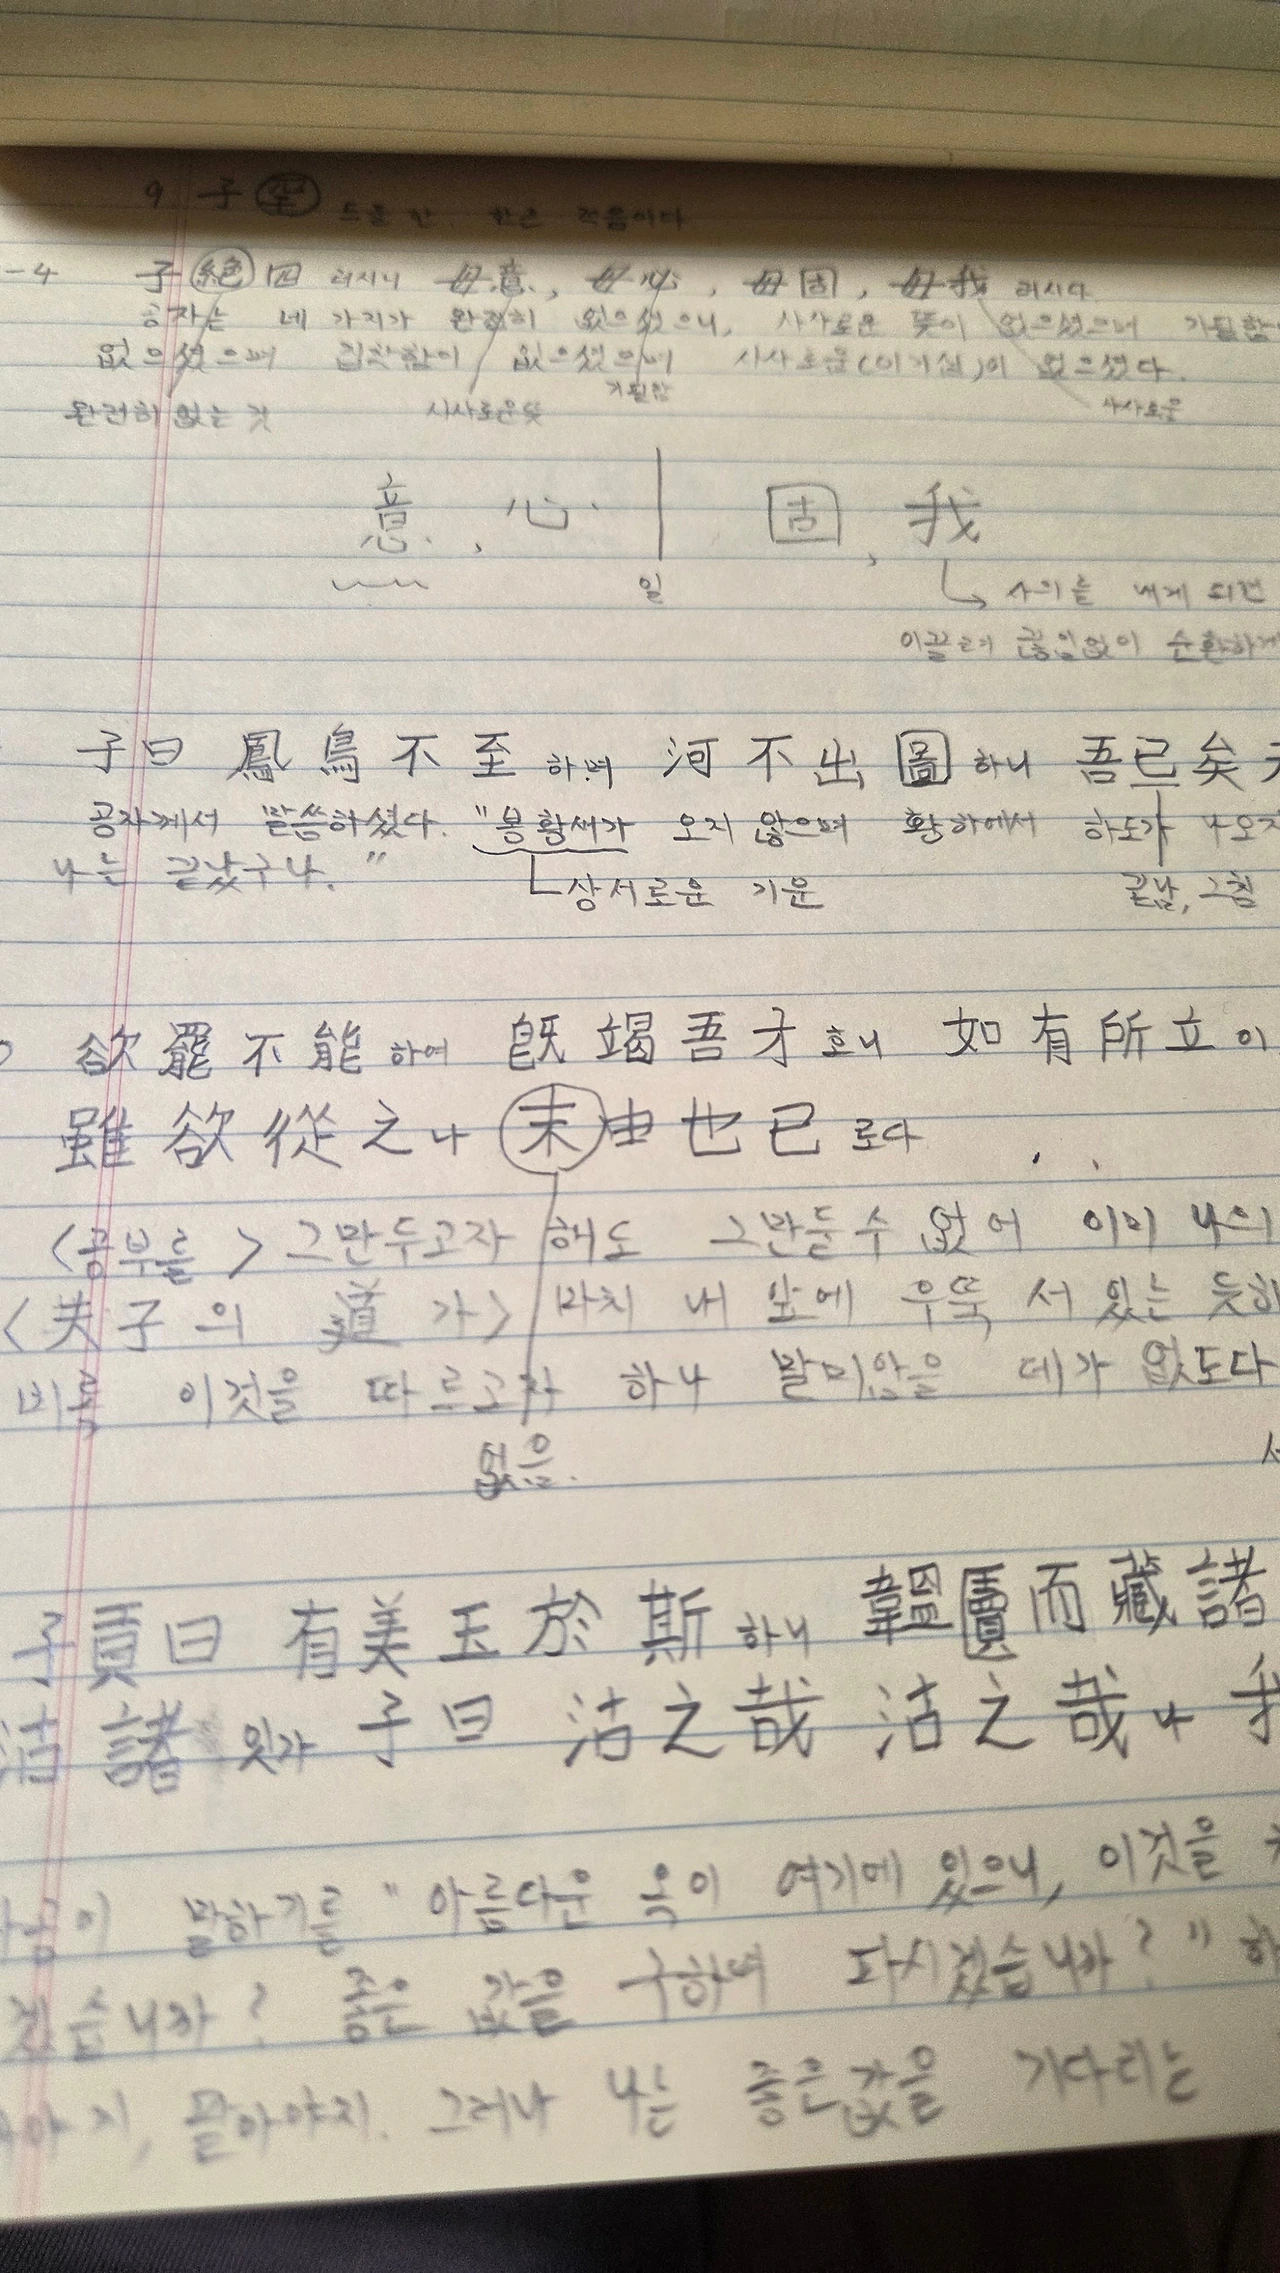 9. 子罕 드물 한. 한은 적음이다
-4 子絕四 러시니 毋意, 毋必, 毋固, 毋我 러시다
공자는 네 가지가 완전히 없으셨으니, 사사로운 뜻이 없으셨으며 기필함
없으셨으며 집착함이 없으셨으며 사사로움(이기심)이 없으셨다.
완전히 없는 것 사사로운 뜻 기필함 사사로움
意, 必 固, 我
일 사의를 내게 되면
이끌려 끊임없이 순환하게
子曰 鳳鳥不至 하며 河不出圖 하니 吾已矣夫
공자께서 말씀하셨다. "봉황새가 오지 않으며 황하에서 하도가 나오지
나는 끝났구나."
상서로운 기운 끝남, 그침
欲罷不能 하여 旣竭吾才 호니 如有所立 이
雖欲從之 나 末由也已 로다
<공부를> 그만두고자 해도 그만둘수 없어 이미 나의
<夫子의 道가> 마치 내 앞에 우뚝 서 있는 듯하
비록 이것을 따르고자 하나 말미암을 데가 없도다
없음.
子貢曰 有美玉於斯 하니 韞匵而藏諸
沽諸 잇가 子曰 沽之哉 沽之哉 나 我
자공이 말하기를 "아름다운 옥이 여기에 있으니, 이것을
겠습니까? 좋은 값을 구하며 파시겠습니까?" 하
팔아야지. 그러나 나는 좋은값을 기다리는